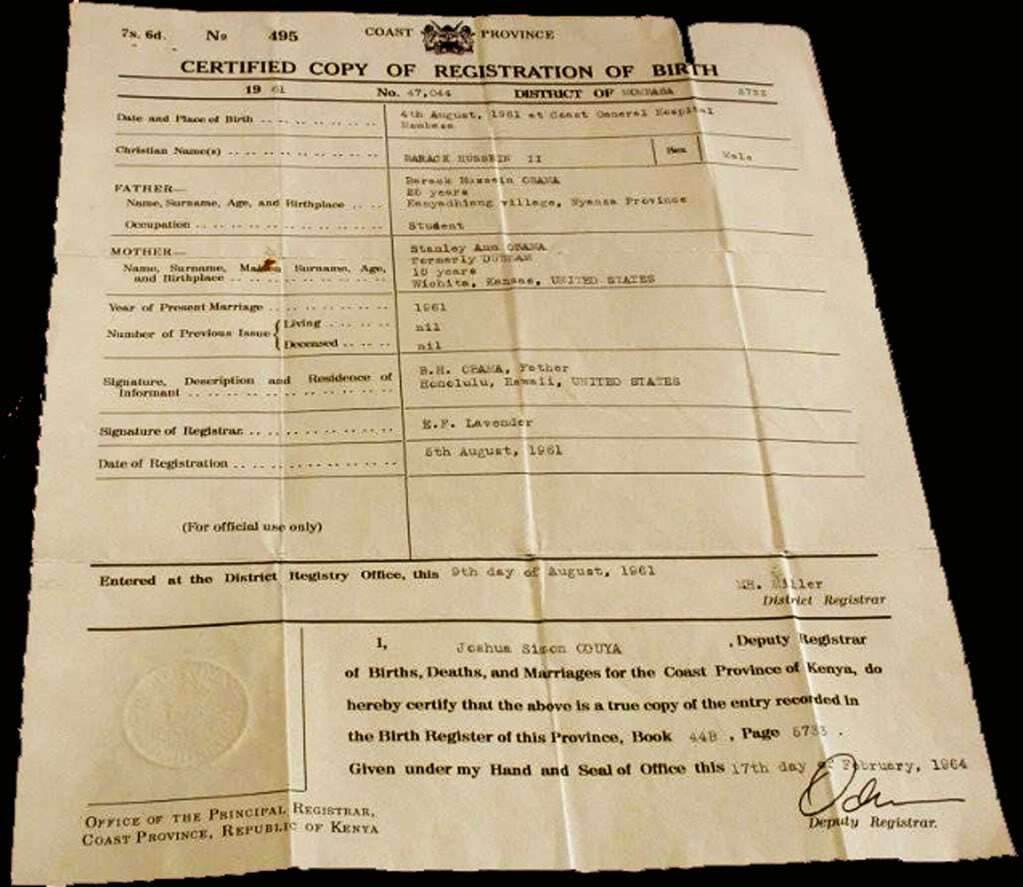 7s. 6d. No 495 COAST PROVINCE
CERTIFIED COPY OF REGISTRATION OF BIRTH
19 61 No. 47,044 DISTRICT OF MOMBASA 5733
Date and Place of Birth 4th August, 1961 at Coast General Hospital
Mombasa
Christian Name(s) BARACK HUSSEIN II Sex Male
FATHER—
Name, Surname, Age, and Birthplace
Barack Hussein OBAMA
years
Kanyadhiang village, Nyanza Province
Occupation Student
MOTHER—
Name, Surname, Maiden Surname, Age,
and Birthplace
Stanley Ann OBAMA
formerly DUNHAM
years
Wichita, Kansas, UNITED STATES
Year of Present Marriage 1961
Number of Previous Issue { Living nil
Deceased nil
Signature, Description and Residence of
Informant
B.H. OBAMA, Father
Honolulu, Hawaii, UNITED STATES
Signature of Registrar E.F. Lavender
Date of Registration 5th August, 1961
(For official use only)
Entered at the District Registry Office, this 9th day of August, 1961
MH. Miller
District Registrar
I, Joshua Simon ODUYA, Deputy Registrar
of Births, Deaths, and Marriages for the Coast Province of Kenya, do
hereby certify that the above is a true copy of the entry recorded in
the Birth Register of this Province, Book 44B, Page 5733.
Given under my Hand and Seal of Office this 17th day of February, 1964
Deputy Registrar.
OFFICE OF THE PRINCIPAL REGISTRAR,
COAST PROVINCE, REPUBLIC OF KENYA